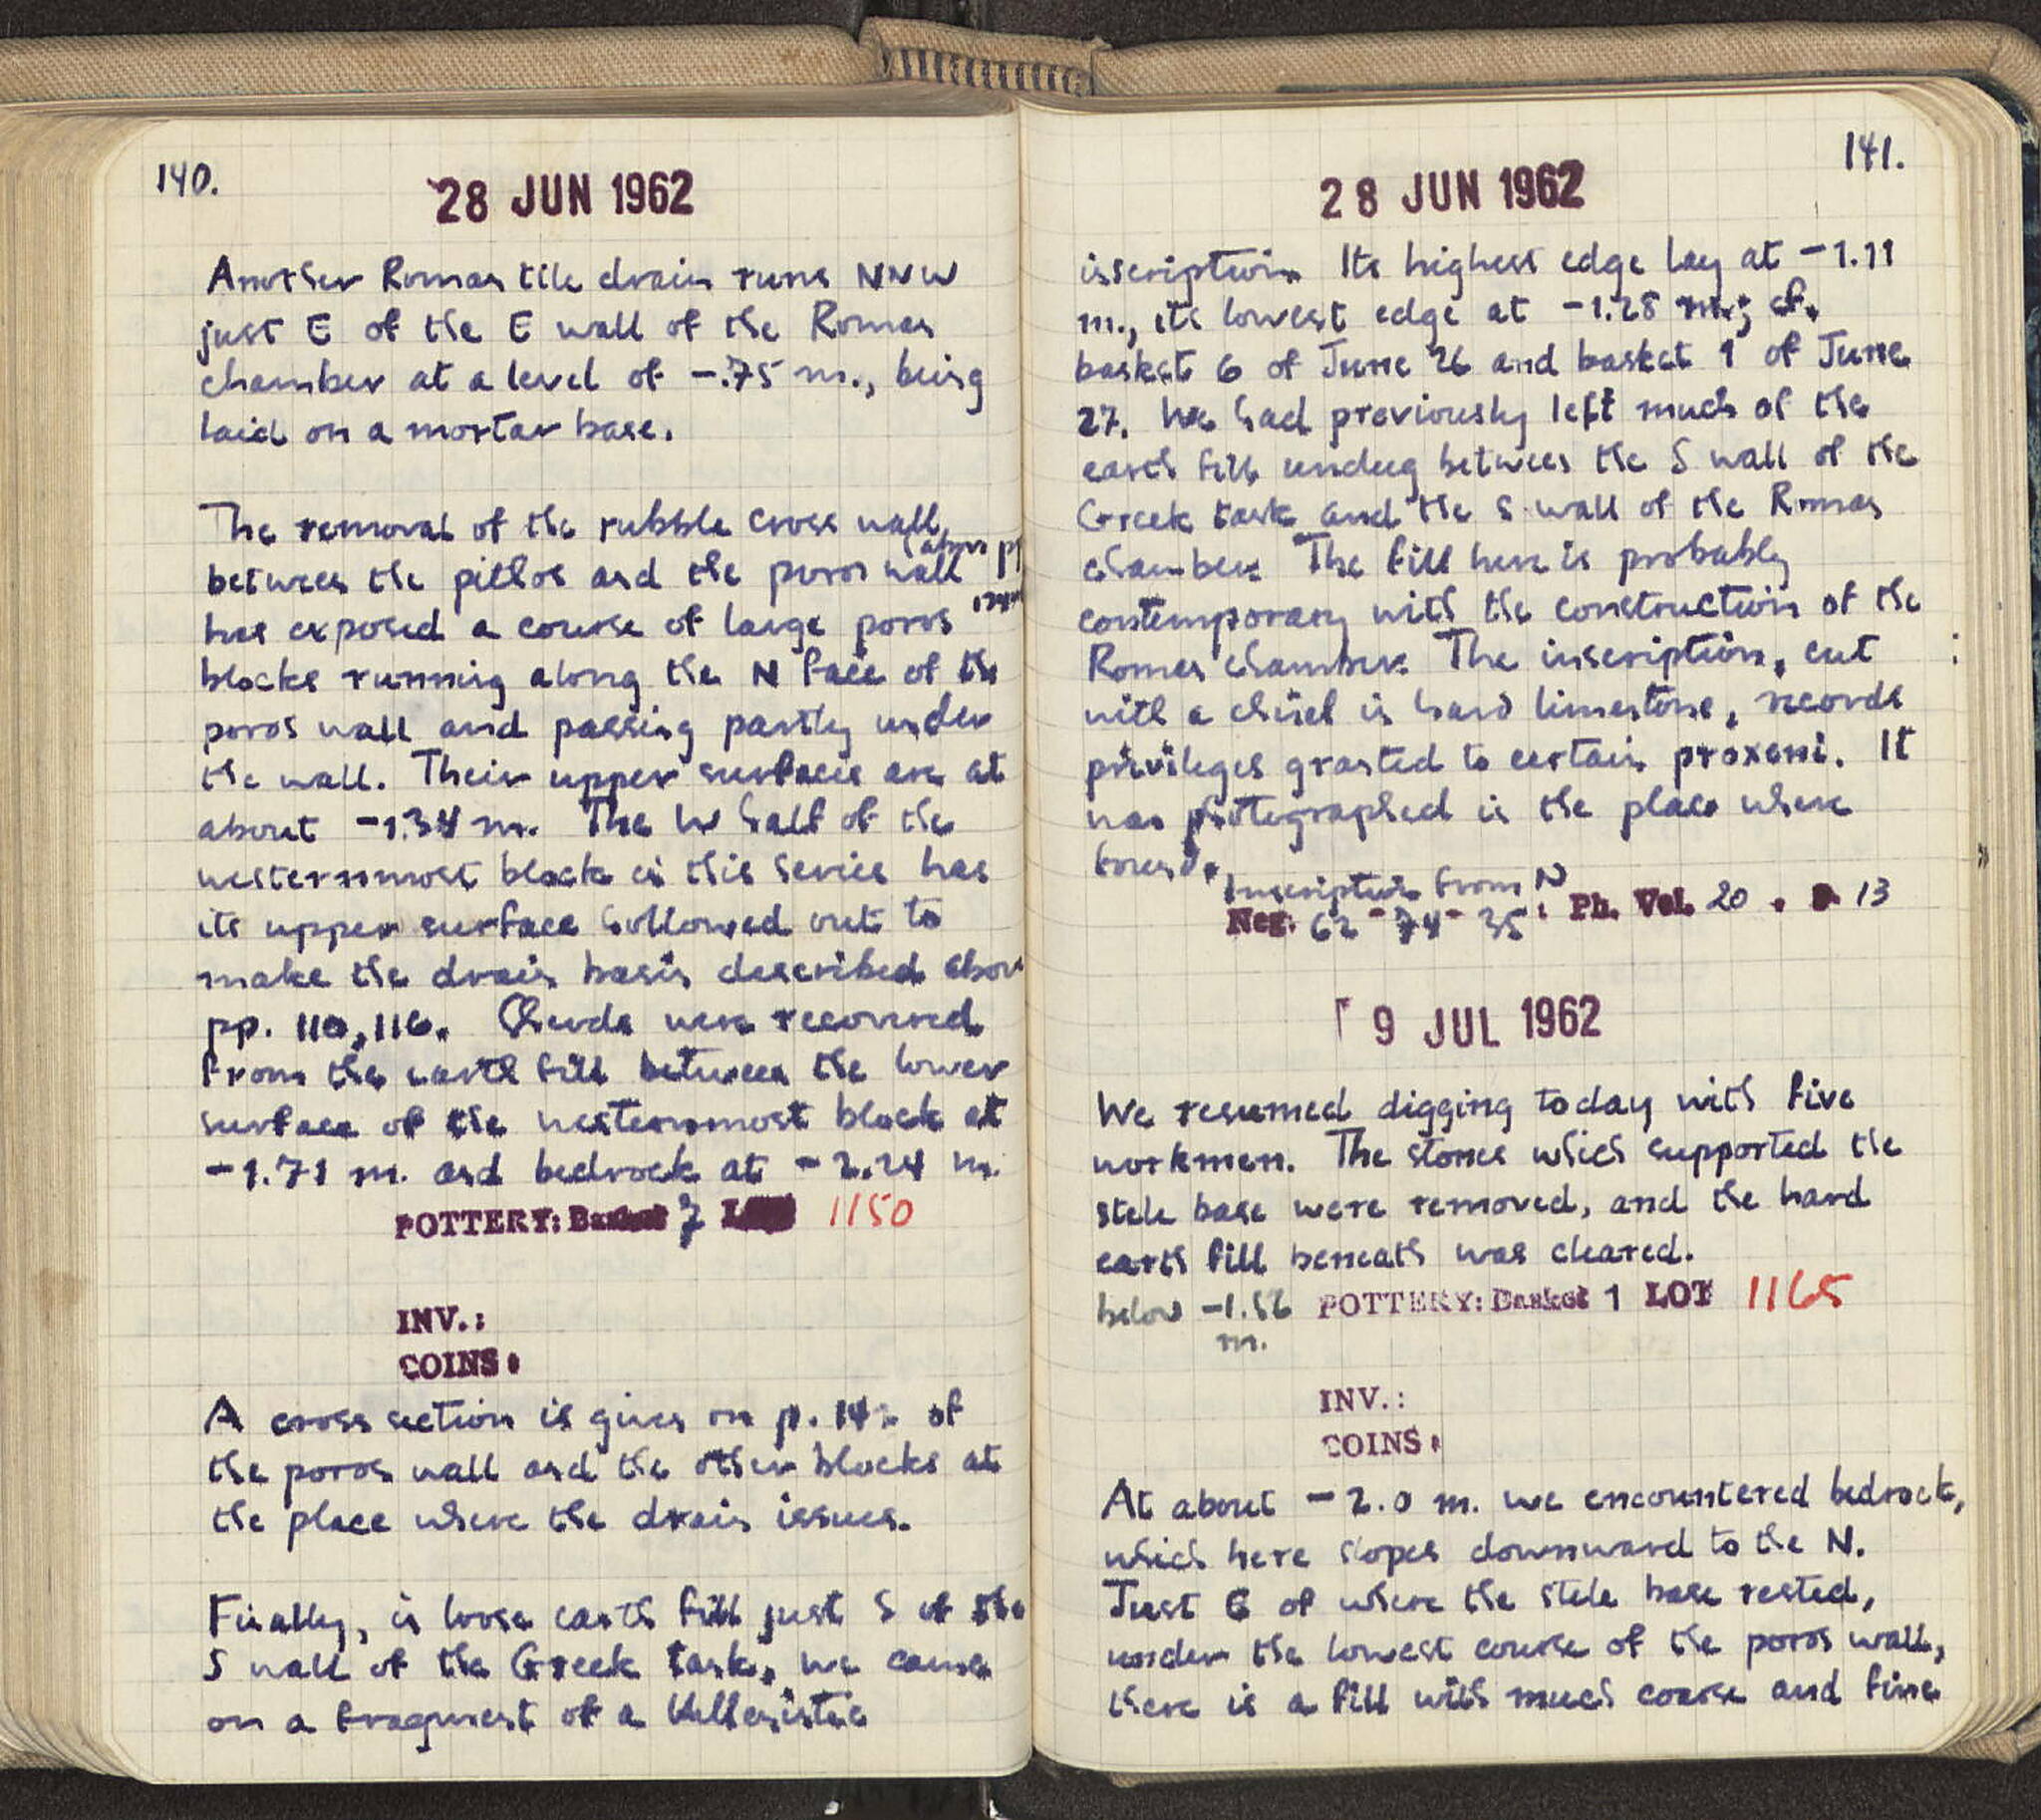 140.
28 JUN 1962
Another Roman tile drain runs NNW
just E of the E wall of the Roman
chamber at a level of -.75 m., being
laid on a mortar base.
The removal of the rubble cross wall
between the pithos and the poros wall (above
has exposed a course of large poros
blocks running along the N face of the
poros wall and passing partly under
the wall. Their upper surfaces are at
about -1.34 m. The W half of the
westernmost block in this series has
its upper surface hollowed out to
make the drain basin described above
pp. 110, 116. Sherds were recovered
from the earth fill between the lower
surface of the westernmost block at
-1.71 m. and bedrock at -2.24 m.
POTTERY: Basket 7 LOT 1150
INV.:
COINS:
A cross section is given on p. of
the poros wall and the other blocks at
the place where the drain issues.
Finally, in loose earth fill just S of the
S wall of the Greek tank, we came
on a fragment of a Hellenistic
141.
28 JUN 1962
inscription. Its highest edge lay at -1.11
m., its lowest edge at -1.28 m.; cf.
basket 6 of June 26 and basket 1 of June
27. We had previously left much of the
earth fill undug between the S wall of the
Greek tank and the S wall of the Roman
chamber. The fill here is probably
contemporary with the construction of the
Roman chamber. The inscription, cut
with a chisel in hard limestone, records
privileges granted to certain proxeni. It
was photographed in the place where
found.
Inscription from N
Neg. 62-74-35: Ph. Vol. 20. p 13
9 JUL 1962
We resumed digging today with five
workmen. The stones which supported the
stele base were removed, and the hard
earth fill beneath was cleared.
below -1.56 POTTERY: Basket 1 LOT 1165
m.
INV.:
COINS:
At about -2.0 m. we encountered bedrock,
which here slopes downward to the N.
Just E of where the stele base rested,
under the lowest course of the poros wall,
there is a fill with much coarse and fine